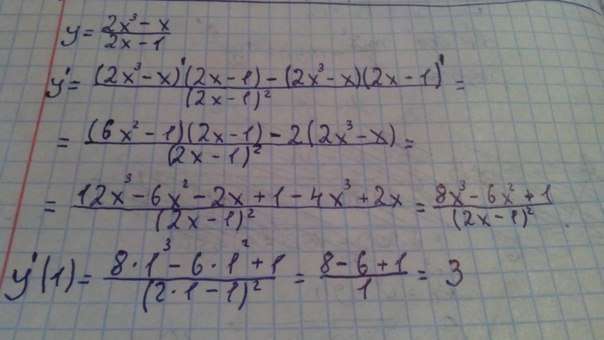 y = (2x³ - x)/(2x - 1)
y' = ((2x³ - x)'(2x - 1) - (2x³ - x)(2x - 1)')/(2x - 1)² =
= ((6x² - 1)(2x - 1) - 2(2x³ - x))/(2x - 1)² =
= (12x³ - 6x² - 2x + 1 - 4x³ + 2x)/(2x - 1)² = (8x³ - 6x² + 1)/(2x - 1)²
y'(1) = (8·1³ - 6·1² + 1)/(2·1 - 1)² = (8 - 6 + 1)/1 = 3